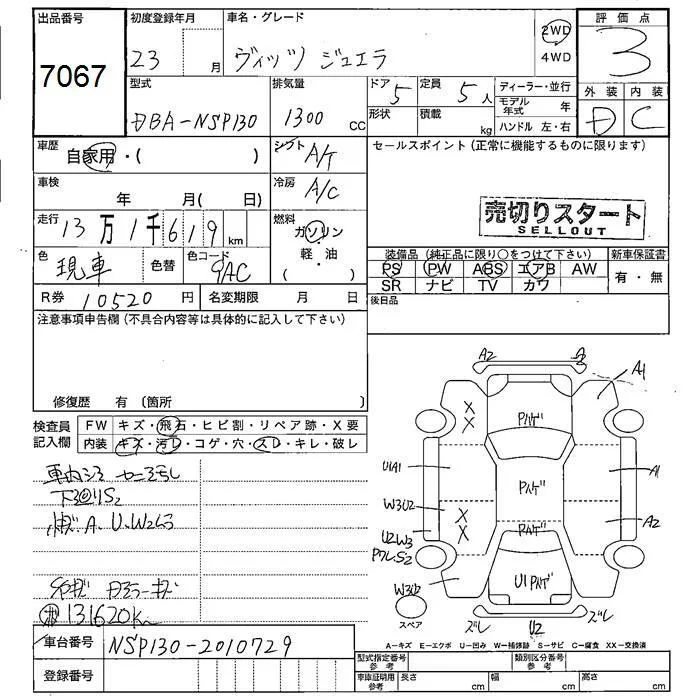 出品番号
7067
初度登録年月
23 月
車名・グレード
ヴィッツ ジュエラ
2WD
4WD
評価点
3
外装 内装
D C
型式
DBA-NSP130
排気量
1300 CC
ドア
5
定員
5人
形状
積載
kg
ディーラー・並行
モデル年式 年
ハンドル 左・右
車歴
自家用・( )
シフト
A/T
車検
年 月( 日)
冷房
A/C
走行
13万1千619 km
燃料
ガソリン
軽・油
( )
色
現車
色替
色コード
9AC
R券 10520 円
名変期限 月 日
セールスポイント (正常に機能するものに限ります)
売切りスタート
SELLOUT
装備品 (純正品に限り○をつけて下さい)
PS PW ABS エアB AW
SR ナビ TV カワ
新車保証書
有・無
後日品
注意事項申告欄 (不具合内容等は具体的に記入して下さい)
修復歴 有 (箇所 )
検査員
記入欄
FW キズ・飛石・ヒビ割・リペア跡・X要
内装 キズ・汚レ・コゲ・穴・スレ・キレ・破レ
下廻りS2
A、U、W2
131620Km
車台番号 NSP130-2010729
登録番号
A2
A1
X
X
パハゲ
U1A1
パハゲ
A1
W3U2
X
X
パハゲ
A2
U2W3
W3U2
U1パハゲ
スペア
ズレ
U2
ズレ
A-キズ E-エクボ U-凹み W-補修跡 S-サビ C-腐食 XX-交換済
型式指定番号
参考
類別区分番号
参考
車庫証明用
参考
長さ cm
幅 cm
高さ cm